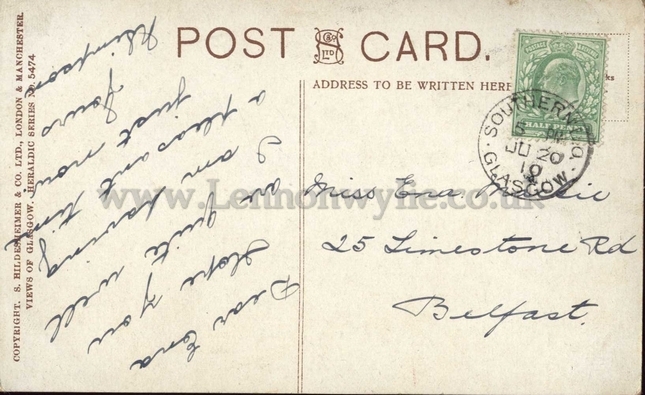 POST CARD.
S H & Co LTD
ADDRESS TO BE WRITTEN HERE
POSTAGE
HALFPENNY
SOUTHERN S.O.
5 PM
JU 20
10
GLASGOW.
Miss Ena
25 Limestone Rd
Belfast.
Dear Ena
Hope you
are quite well
I am having
a pleasant time
just now
Yours
COPYRIGHT. S. HILDESHEIMER & CO. LTD., LONDON & MANCHESTER.
VIEWS OF GLASGOW. HERALDIC SERIES NO. 5474
www.Lennonwylie.co.uk